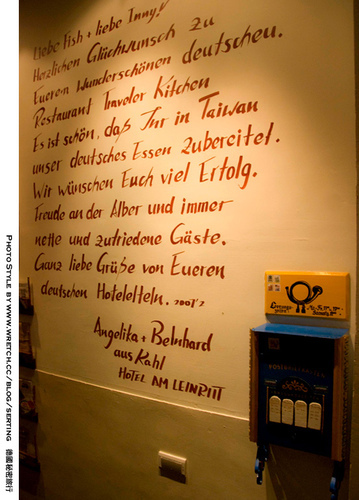 Liebe Fish + liebe Inny!
Herzlichen Glückwunsch zu
Euerem wunderschönen deutschen.
Restaurant Traveler Kitchen
Es ist schön, daß Ihr in Taiwan
unser deutsches Essen zubereitet.
Wir wünschen Euch viel Erfolg.
Freude an der Alber und immer
nette und zufriedene Gäste.
Ganz liebe Grüße von Eueren
deutschen Hoteleltern. 2007/2
Angelika + Belnhard
aus Kahl
HOTEL AM LEINRITT
PHOTO STYLE BY WWW.WRETCH.CC/BLOG/SERTING 德國秘密旅行